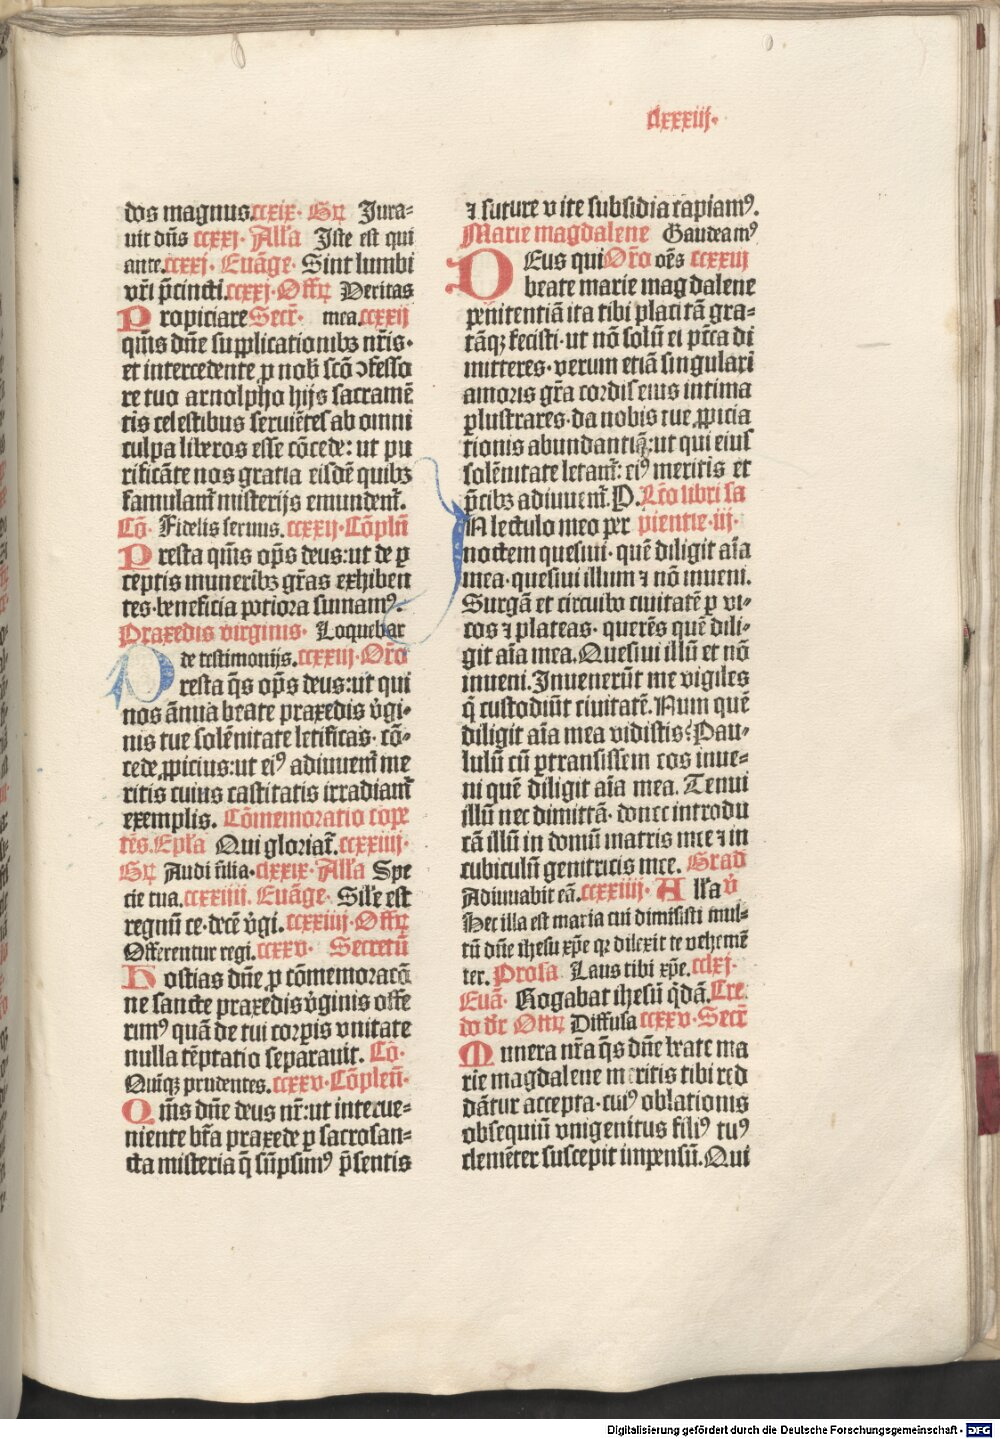 clxxxiij.
dos magnus. ccxix. Gr̄ Jura-
uit dn̄s ccxxj. All'a Iste est qui
ante. ccxxj. Euāge. Sint lumbi
vr̄i p̄cincti. ccxxj. Off̄r Veritas
Propiciare Secr̄. mea. ccxxij
qm̄s dn̄e supplicationibꝫ nr̄is.
et intercedente ꝓ nob̄ scō ꝯfesso
re tuo arnolpho hijs sacramē
tis celestibus seruiētes ab omni
culpa liberos esse cōcede: ut pu
rificāte nos gratia eisdē quibꝫ
famulam̄ misterijs emundem̄.
Cō. Fidelis seruus. ccxxij. Cōpln̄
Presta qm̄s op̄s deus: ut de ꝑ
ceptis muneribꝫ gr̄as exhiben
tes. beneficia potiora sumamꝰ.
Praxedis virginis. Loquebar
de testimonijs. ccxxiij. Or̄o
Presta q̄s op̄s deus: ut qui
nos ānua beate praxedis v̄gi-
nis tue solēnitate letificas. cō-
cede ꝓpicius: ut eiꝰ adiuuem̄ me
ritis cuius castitatis irradiam̄
exemplis. Cōmemoratio cope
tēs. Ep̄la Qui gloriat̄. ccxxiiij.
Gr̄ Audi filia. clxxix. All'a Spe
cie tua. ccxxiiij. Euāge. Sil'e est
regnū ce. decē v̄gi. ccxxiiij. Off̄r
Offerentur regi. ccxxv. Secretū
Hostias dn̄e ꝓ cōmemoracō
ne sancte praxedis v̄ginis offe
rimꝰ quā de tui corꝑis vnitate
nulla tēptatio separauit. Cō.
Quīqꝫ prudentes. ccxxv. Cōplen̄.
Qm̄s dn̄e deus nr̄: ut interue-
niente bt̄a praxede ꝑ sacrosan-
cta misteria q̄ sūpsimꝰ p̄sentis
⁊ future vite subsidia capiamꝰ.
Marie magdalene Gaudeamꝰ
DEus qui Or̄o oēs ccxxiij
beate marie magdalene
penitentiā ita tibi placitā gra-
tāqꝫ fecisti. ut nō solū ei pctā di
mitteres. verum etiā singulari
amoris gr̄a cordis eius intima
ꝑlustrares. da nobis tue ꝓpicia
tionis abundantiā: ut qui eius
solēnitate letam̄: eiꝰ meritis et
p̄cibꝫ adiuuem̄. P. Lc̄o libri sa
IN lectulo meo per pientie. iij.
noctem quesiui. quē diligit aīa
mea. quesiui illum ⁊ nō inueni.
Surgā et circuibo ciuitatē ꝑ vi-
cos ⁊ plateas. querēs quē dili-
git aīa mea. Quesiui illū et nō
inueni. Inuenerūt me vigiles
q̄ custodiūt ciuitatē. Num quē
diligit aīa mea vidistis? Pau-
lulū cū ꝑtransissem eos inue-
ni quē diligit aīa mea. Tenui
illū nec dimittā. donec introdu
cā illū in domū matris mee ⁊ in
cubiculū genitricis mee. Grad̄
Adiuuabit eā. ccxxiiij. All'a v̄
Hec illa est maria cui dimisisti mul-
tū dn̄e ihesu xp̄e qr dilexit te vehemē
ter. Prosa Laus tibi xp̄e. cclxj.
Euā. Rogabat ihesū q̄dā. Cre.
do dr̄ Off̄r Diffusa ccxxv. Secr̄
Munera nr̄a q̄s dn̄e beate ma
rie magdalene meritis tibi red
dātur accepta. cuiꝰ oblationis
obsequiū vnigenitus filiꝰ tuꝰ
clemēter suscepit impensū. Qui
Digitalisierung gefördert durch die Deutsche Forschungsgemeinschaft - DFG